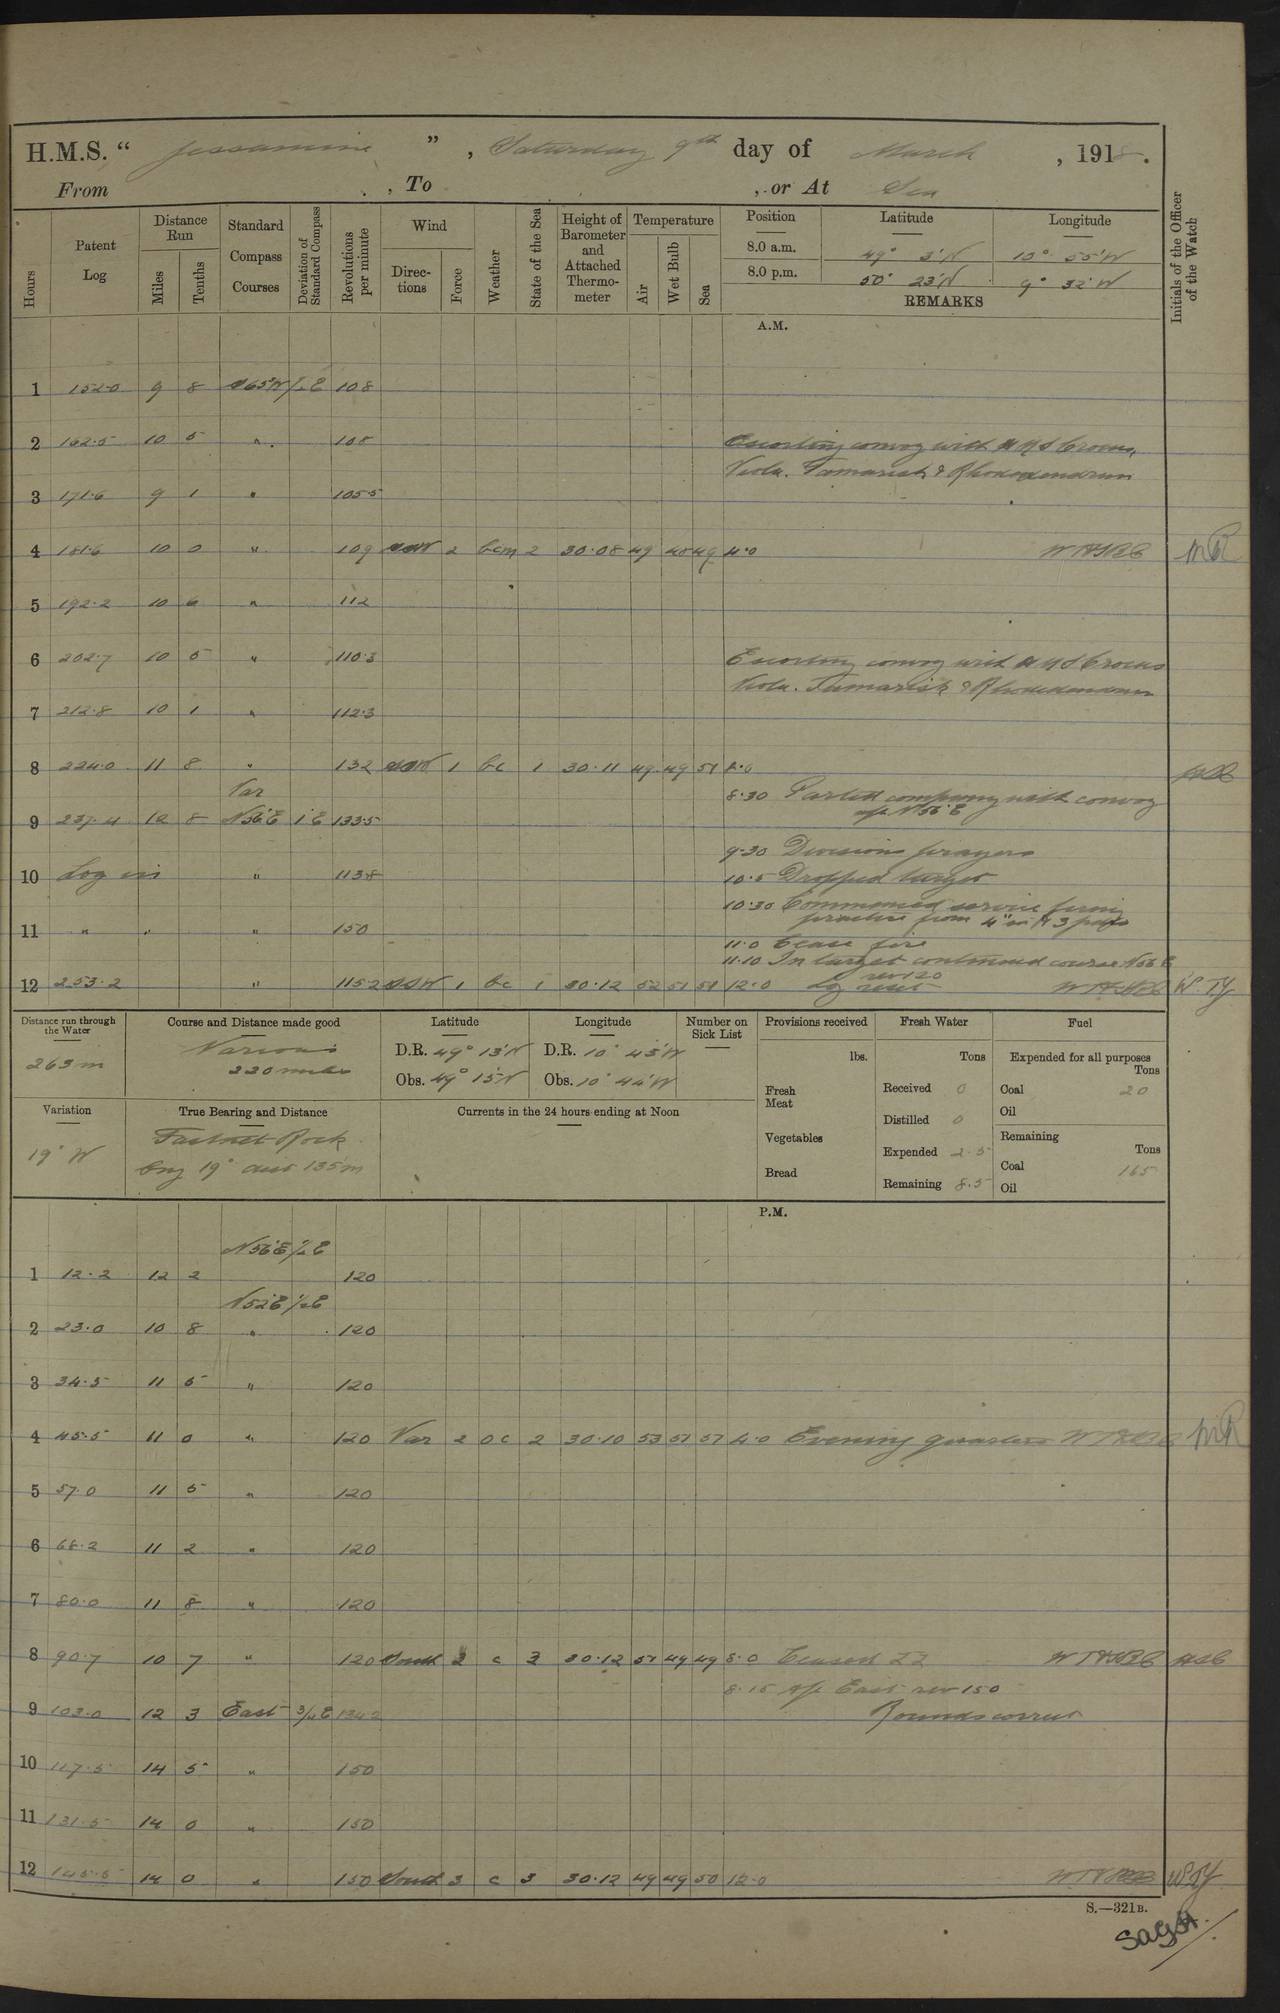 H.M.S. “ Jessamine ” , Saturday 9th day of March , 1918.
From , To , or At Sea
Hours
Patent Log
Distance Run
Miles
Tenths
Standard Compass Courses
Deviation of Standard Compass
Revolutions per minute
Wind
Directions
Force
Weather
State of the Sea
Height of Barometer and Attached Thermometer
Temperature
Air
Wet Bulb
Sea
Position Latitude Longitude
8.0 a.m. 49° 3'N 13° 55'W
8.0 p.m. 50° 23'N 9° 32'W
REMARKS
Initials of the Officer of the Watch
A.M.
1 152.0 9 8 S65W ½E 108
2 162.5 10 5 " 108 Escorting convoy with HMS Crocus,
Viola. Tamarisk & Rhododendron
3 171.6 9 1 " 105.5
4 181.6 10 0 " 109 SSW 2 bcm 2 30.08 49 48 49 4.0
5 192.2 10 6 " 112
6 202.7 10 5 " 110.3 Escorting convoy with HMS Crocus
Viola. Tamarisk & Rhododendron
7 212.8 10 1 " 112.3
8 224.0 11 8 " 132 SSW 1 bc 1 30.11 49 49 51 8.0
Var 8.30 Parted company with convoy
a/c N56°E
9 237.4 12 8 N56E 1E 133.5
9.30 Divisions prayers
10 Log in " 113.8 10.5 Dropped target
10.30 Commenced service firing
practice from 4" & 3 pdrs
11 " " " 150
11.0 Cease fire
11.10 In target continued course N56E
rev 120
12 253.2 " 115.2 SSW 1 bc 1 30.12 52 51 51 12.0 Log reset
Distance run through the Water
263m
Course and Distance made good
Various
220 miles
Latitude
D.R. 49° 13'N
Obs. 49° 15'N
Longitude
D.R. 10° 45'W
Obs. 10° 44'W
Number on Sick List
Provisions received
lbs.
Fresh Meat
Vegetables
Bread
Fresh Water
Tons
Received 0
Distilled 0
Expended 2.5
Remaining 8.5
Fuel
Expended for all purposes
Tons
Coal 20
Oil
Remaining
Tons
Coal 165
Oil
Variation
19° W
True Bearing and Distance
Fastnet Rock
brg 19° dist 135m
Currents in the 24 hours ending at Noon
P.M.
N56E ½E
1 12.2 12 2 120
N52E ½E
2 23.0 10 8 " 120
3 34.5 11 5 " 120
4 45.5 11 0 " 120 Var 2 oc 2 30.10 53 51 51 4.0 Evening quarters
5 57.0 11 5 " 120
6 68.2 11 2 " 120
7 80.0 11 8 " 120
8 90.7 10 7 " 120 South 3 c 3 30.12 51 49 49 8.0 Ceased ZZ
8.15 a/c East rev 150
9 103.0 12 3 East ¾E 134.2 Rounds correct
10 117.5 14 5 " 150
11 131.5 14 0 " 150
12 145.5 14 0 " 150 South 3 c 3 30.12 49 49 50 12.0
S.—321B.